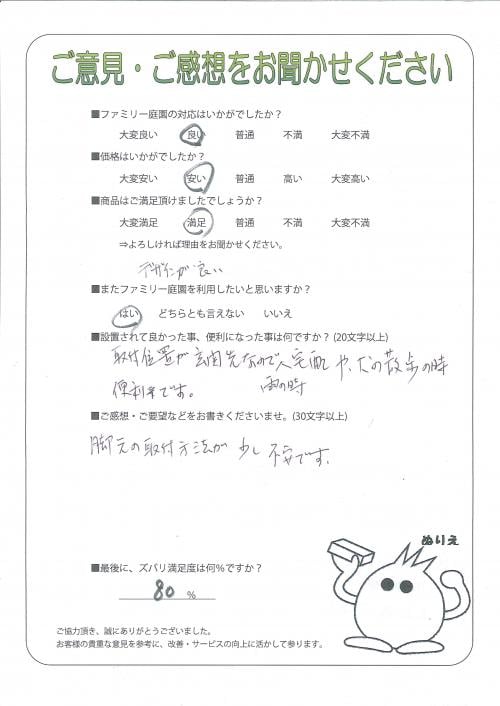 ご意見・ご感想をお聞かせください
■ファミリー庭園の対応はいかがでしたか？
大変良い 良い 普通 不満 大変不満
■価格はいかがでしたか？
大変安い 安い 普通 高い 大変高い
■商品はご満足頂けましたでしょうか？
大変満足 満足 普通 不満 大変不満
⇒よろしければ理由をお聞かせください。
デザインが良い
■またファミリー庭園を利用したいと思いますか？
はい どちらとも言えない いいえ
■設置されて良かった事、便利になった事は何ですか？(20文字以上)
取付位置が玄関先なので、宅配や、犬の散歩の時
便利です。 雨の時
■ご感想・ご要望などをお書きくださいませ。(30文字以上)
脚元の取付方法が少し不安です。
ぬりえ
■最後に、ズバリ満足度は何％ですか？
80 ％
ご協力頂き、誠にありがとうございました。
お客様の貴重な意見を参考に、改善・サービスの向上に活かして参ります。